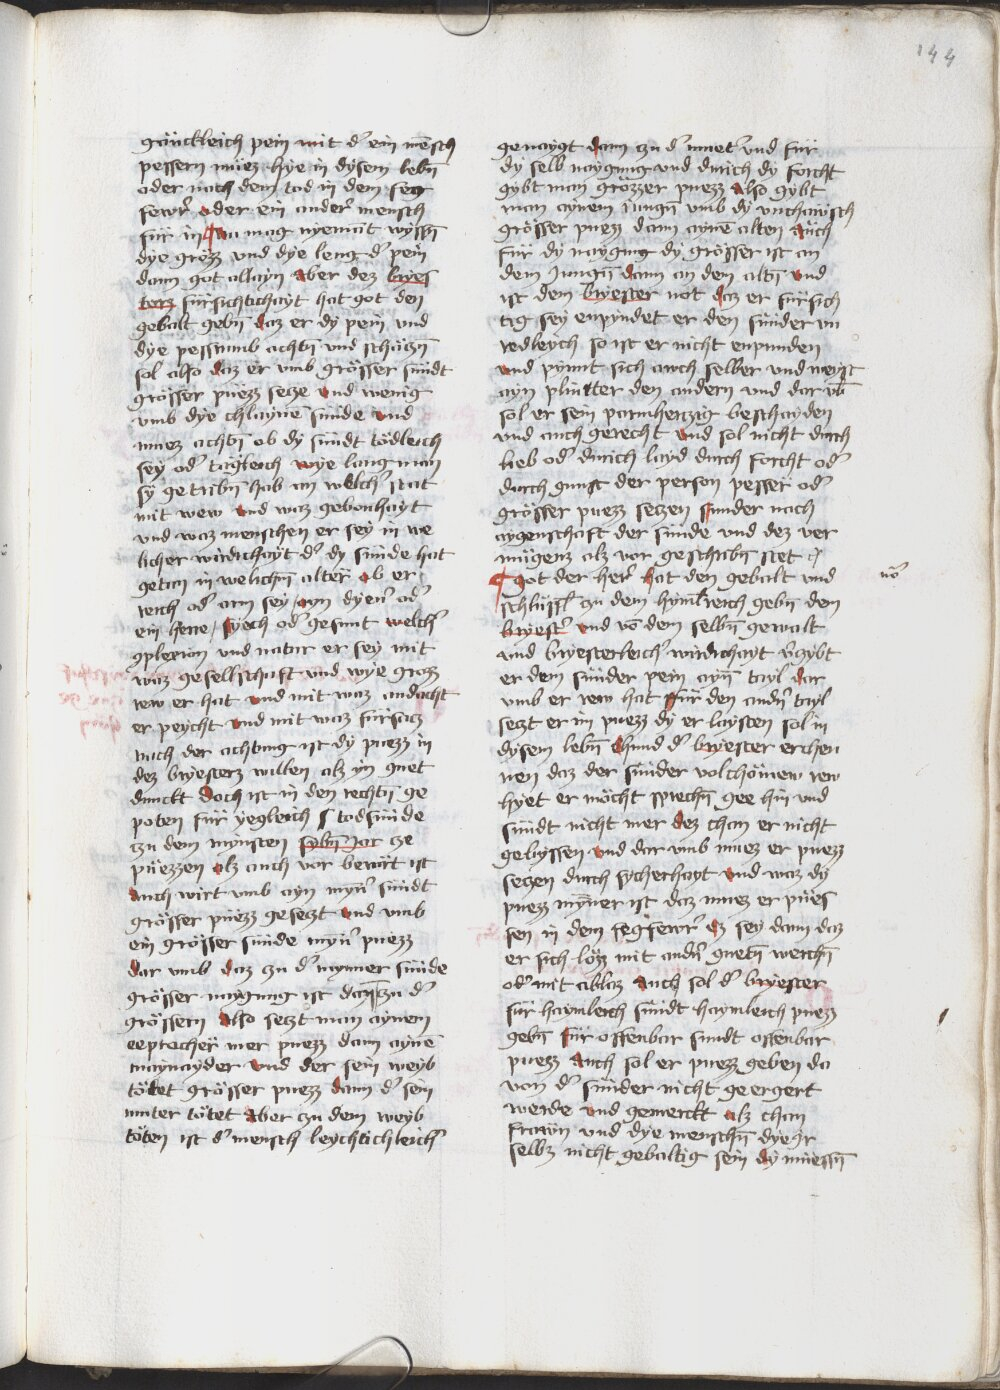 144
gröückleich pein mit d' ein mensch
pessern müez hye in dysem lebn̄
oder nach dem tod in dem feg
fewr̄ oder ein ander' mensch
für in Nu mag nyemant wyssn̄
dye gröz und dye leng d' pein
dann got allayn aber dez bryes
terz fürsichtichayt hat got den
gebalt gebn̄ daz er dy pein und
dye pessrumb achtn̄ und schätzn̄
sol also daz er umb grösser sündt
grösser püezz secze und wenig
umb dye chlayne sünde und
muez achtn̄ ob dy sündt tödleich
sey od' tägleich wye lang man
sy getribn̄ hab an welch' stat
mit wew und waz gebonhayt
und waz menschen er sey in we
licher wirdichayt d' dy sünde hat
getan in welichm̄ alter ob er
reich od' arm sey ayn dyen' od'
ein herre / syech od' gesunt welch'
gplexion und natur er sey mit
waz gesellschaft und wye groz
rew er hat und mit waz andacht
er peycht und mit waz fürsacz
nach der achtung ist dy puezz in
dez bryesterz willen alz yn guet
dunckt doch ist in den rechtn̄ ge
poten für yegleich todsünde
zu dem mynsten sybn̄ Jar ze
püezzen alz auch vor berürt ist
auch wirt umb ayn myn' sündt
grösser püezz geseczt und umb
ein grösser sünde myn' puezz
dar umb daz zu d' mynner sünde
grösser naygung ist dan̄ zu d'
grössern also seczt man aynem
eeprecher mer puezz dann ayne
maynayder und der sein weyb
tötet grösser puezz dann d' sein
muter tötet aber zu dem weyb
töten ist d' mensch leychtichleich'
genaygt dann zu d' muet' und für
dy selb naygung und durich dy forcht
gybt man grözzer puezz also gybt
man aynem Jungn̄ umb dy unchäwsch
grösser puezz dann ayne alten auch
für dy naygung dy grösser ist an
dem Jungn̄ dann an dem altn̄ und
ist dem bryester not daz er fürsich
tig sey enpindet er den sünder un
redleych so ist er nicht enpunden
und pynnt sich auch selber und weyst
ayn plinter den andern und dar ub
sol er sein parmherczig beschayden
und auch gerecht und sol nicht durch
lieb od' durich layd durch forcht od'
durch gunst der person pesser od'
grösser puezz seczen sunder nach
aygenschaft der sünde und dez ver
mügenz alz vor geschribn̄ stet
got der her' hat den gebalt und
schlüssl zu dem hymlreich gebn̄ den
bryest' und vō dem selbn̄ gewalt
und bryesterleich' wirdichayt v'gybt
er dem sünder pein ayn̄ tayl dar
umb er rew hat für den andn̄ tayl
seczt er im puezz dy er laysten sol in
dysem lebn̄ chund d' bryester erchen
nen daz der sünder volchömen rew
hyet er möcht sprechn̄ gee hin und
sündt nicht mer dez chan er nicht
gebyssen und dar umb muez er puezz
seczen durch sycherhayt und waz dy
puezz mynner ist daz muez er pües
sen in dem fegfewr̄ ez sey dann daz
er sich löz mit andn̄ guetn̄ werchn̄
od' mit ablaz auch sol d' bryester
für haymleich sündt haymleich puezz
gebn̄ für offenbar sundt offenbar
puezz auch sol er puezz geben da
von d' sünder nicht geergert
werde und gemerckt alz chan
frawn und dye menschn̄ dye Jr
selbz nicht gebaltig sein dy müessn̄